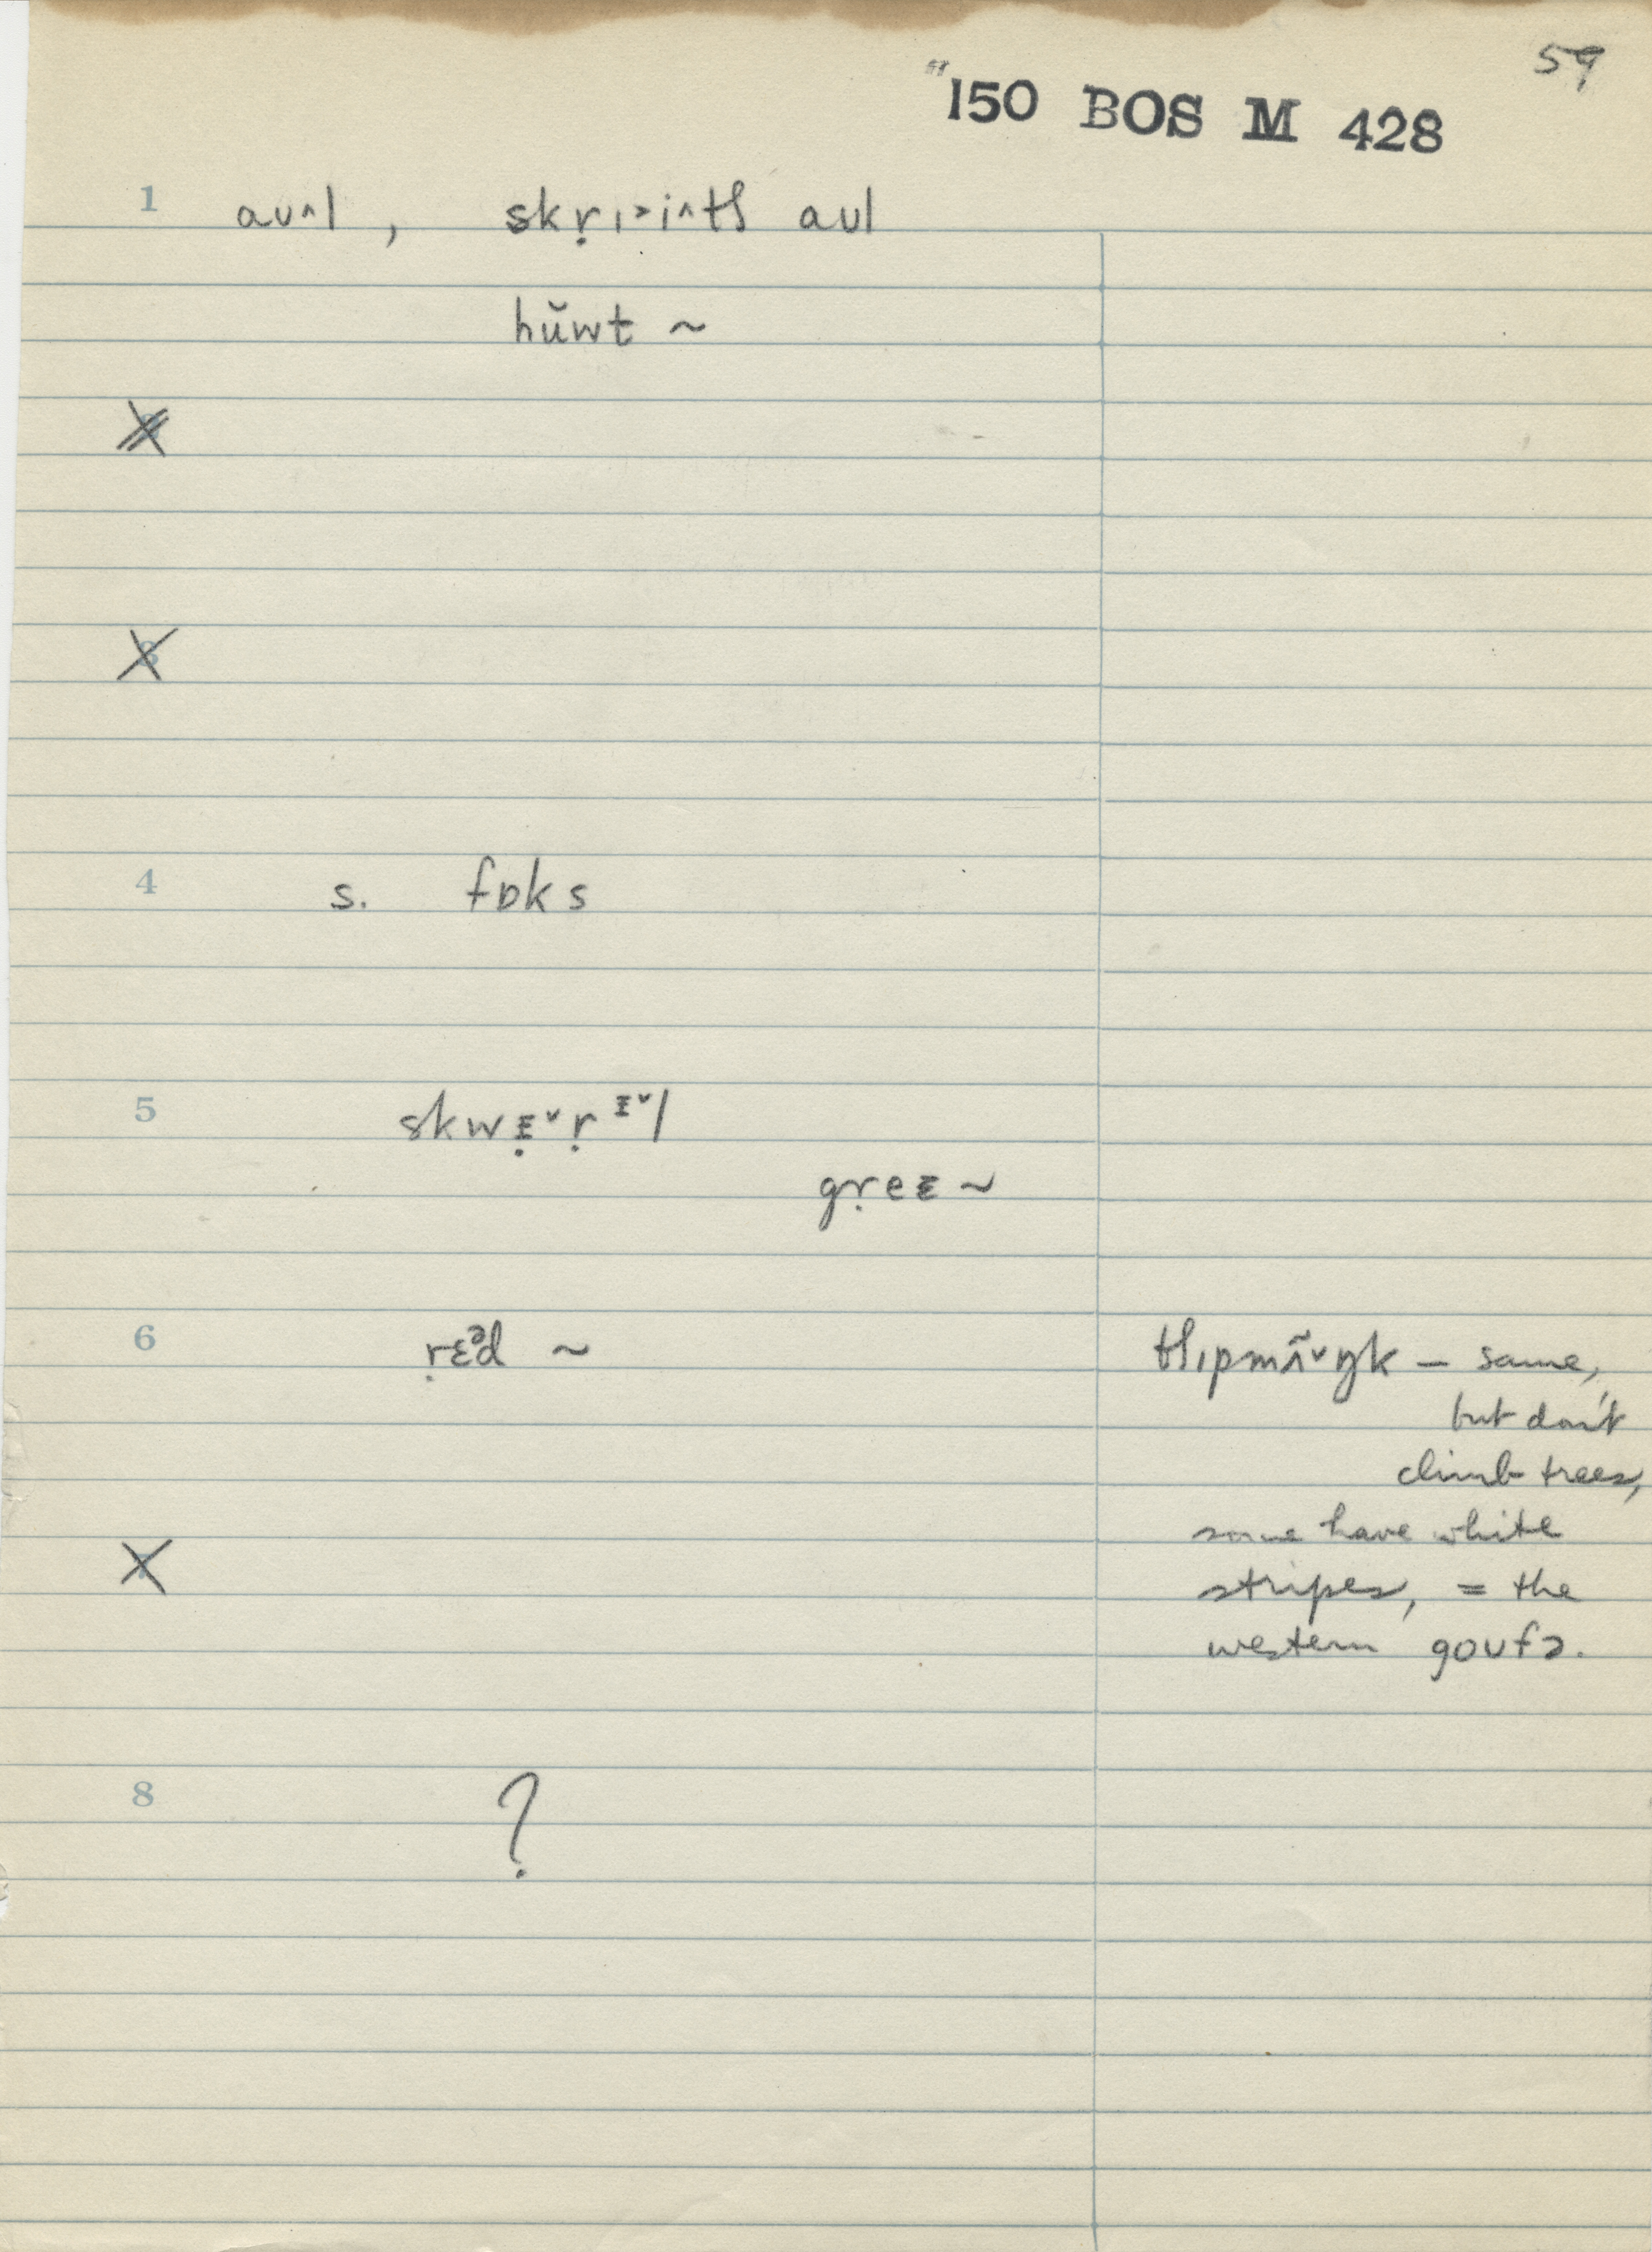 59
150 BOS M 428
1 aʊ^l , skṛɪ>i^tʃ aʊl
hŭwt ~
4 s. fɒks
5 skwᵻ̣˅ṛᵻ˅l
gṛeᵻ ~
6 ṛɛᵊd ~
tʃɪpmʌ̃˅ŋk – same,
but don't
climb trees,
some have white
stripes, = the
western goʊfɚ.
8 ?